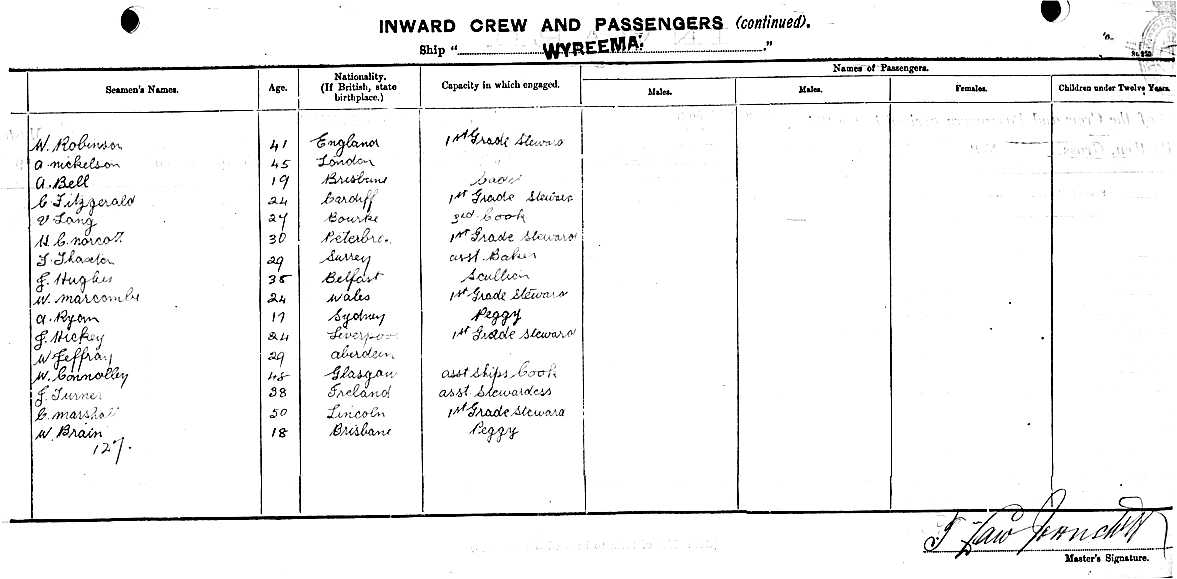 INWARD CREW AND PASSENGERS (continued).
Ship "WYREEMA."
Seamen's Names. Age. Nationality. (If British, state birthplace.) Capacity in which engaged. Names of Passengers.
Males. Males. Females. Children under Twelve Years.
W. Robinson 41 England 1st Grade Steward
A. Nickelson 45 London
A. Bell 19 Brisbane
C. Fitzgerald 24 Cardiff 1st Grade Steward
V Lang 27 Bourke 3rd Cook
H C. Norcot 30 1st Grade Steward
29 Surrey asst. Baker
J. Hughes 38 Belfast Scullion
W. Marcombe 24 Wales 1st Grade Steward
A. Ryan 17 Sydney Peggy
J. Hickey 24 Liverpool 1st Grade Steward
W Jeffray 29 Aberdeen
W. Connolley 48 Glasgow asst Ships Cook
J. Turner 38 Ireland asst Stewardess
C. Marshall 50 Lincoln 1st Grade Steward
W. Brain 18 Brisbane Peggy
127.
Master's Signature.